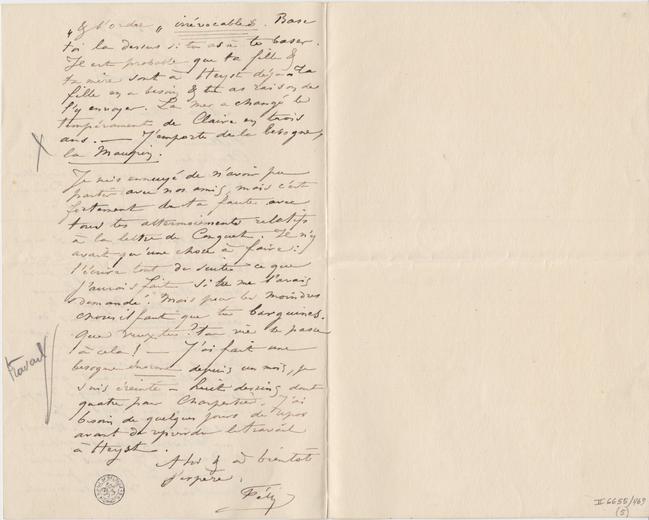 „ & l'ordre „ irrévocables. Base
toi là dessus si tu as à te baser.
Il est probable que ta fille &
ta mère sont à Heyst déjà. Ta
fille en a besoin & tu as raison de
l'y envoyer. La mer a changé le
tempérament de Claire en trois
ans. — J'emporte de la besogne,
la Maupin.
Je suis ennuyé de n'avoir pu
partir avec nos amis, mais c'est
fortement de ta faute avec
tous tes attermoiements relatifs
à la lettre de Conquet. Il n'y
avait qu'une chose à faire :
l'écrire tout de suite ce que
j'aurais fait si tu me l'avais
demandé ! Mais pour les moindres
choses il faut que tu barguines.
Que veux tu ? ta vie se passe
à cela ! — J'ai fait une
besogne énorme depuis un mois, je
suis éreinté — huit dessins dont
quatre pour Charpentier. J'ai
besoin de quelques jours de repos
avant de reprendre le travail
à Heyst.
A toi & à bientôt
j'espère,
Fély
travail
II 6655/469
(5)